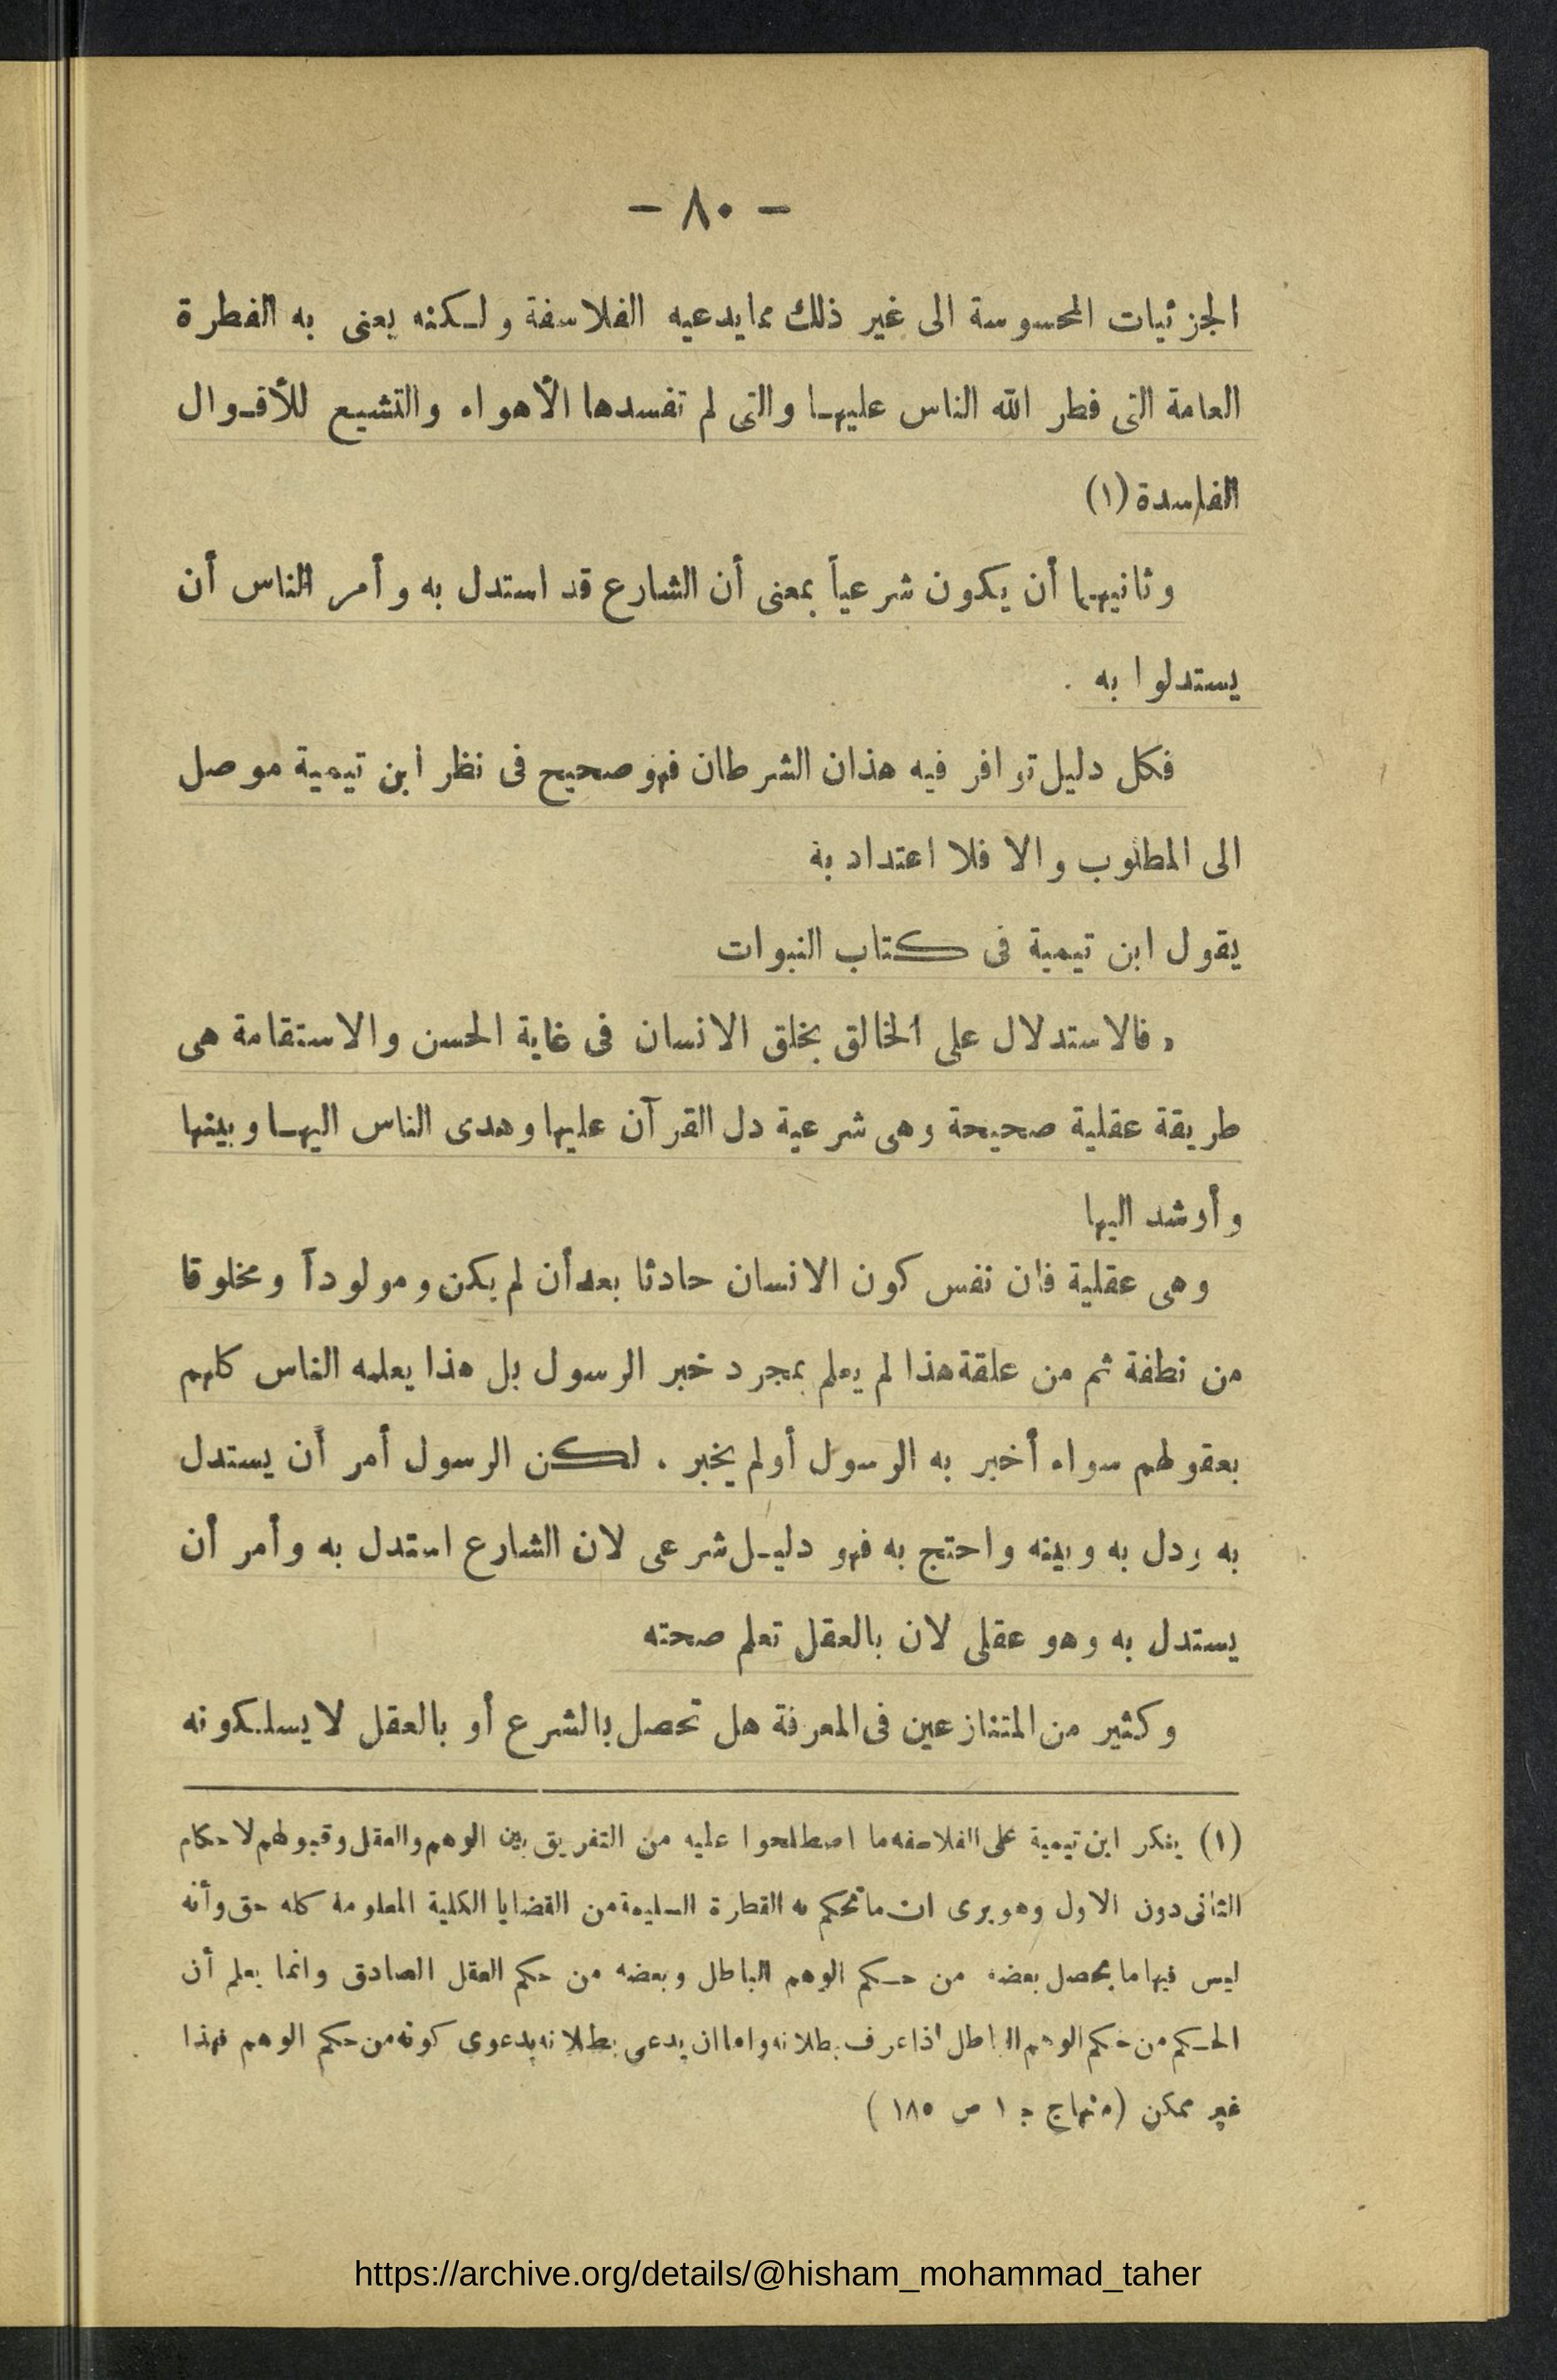 — ٨٠ —
الجزئيات المحسوسة الى غير ذلك مما يدعيه الفلاسفة ولكنه يعنى به الفطرة
العامة التى فطر الله الناس عليها والتى لم تفسدها الأهواء والتشيع للأقوال
الفاسدة (١)
وثانيهما أن يكون شرعياً بمعنى أن الشارع قد استدل به وأمر الناس أن
يستدلوا به .
فكل دليل توافر فيه هذان الشرطان فهو صحيح فى نظر ابن تيمية موصل
الى المطلوب والا فلا اعتداد به
يقول ابن تيمية فى كتاب النبوات
« فالاستدلال على الخالق بخلق الانسان فى غاية الحسن والاستقامة هى
طريقة عقلية صحيحة وهى شرعية دل القرآن عليها وهدى الناس اليها وبينها
وأرشد اليها
وهى عقلية فان نفس كون الانسان حادثا بعد أن لم يكن ومولوداً ومخلوقا
من نطفة ثم من علقة هذا لم يعلم بمجرد خبر الرسول بل هذا يعلمه الناس كلهم
بعقولهم سواء أخبر به الرسول أو لم يخبر . لكن الرسول أمر أن يستدل
به ودل به وبينه واحتج به فهو دليل شرعى لان الشارع استدل به وأمر أن
يستدل به وهو عقلى لان بالعقل تعلم صحته
وكثير من المتنازعين فى المعرفة هل تحصل بالشرع أو بالعقل لا يسلكونه
(١) ينكر ابن تيمية على الفلاسفه ما اصطلحوا عليه من التفريق بين الوهم والعقل وقبولهم لاحكام
الثانى دون الاول وهو يرى ان ما تحكم به الفطارة السليمة من القضايا الكلية المعلومة كله حق وأنه
ليس فيها ما يحصل بعضه من حكم الوهم الباطل وبعضه من حكم العقل الصادق وانما يعلم أن
الحكم من حكم الوهم الباطل اذا عرف بطلانه واما ان يدعى بطلانه بدعوى كونه من حكم الوهم فهذا
غير ممكن (منهاج ج ١ ص ١٨٥ )
https://archive.org/details/@hisham_mohammad_taher